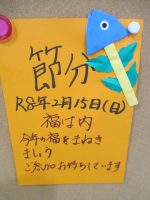 節分
R8年2月15日(日)
福は内
今年の福をまねき
ましょう
ご参加お待ちしています